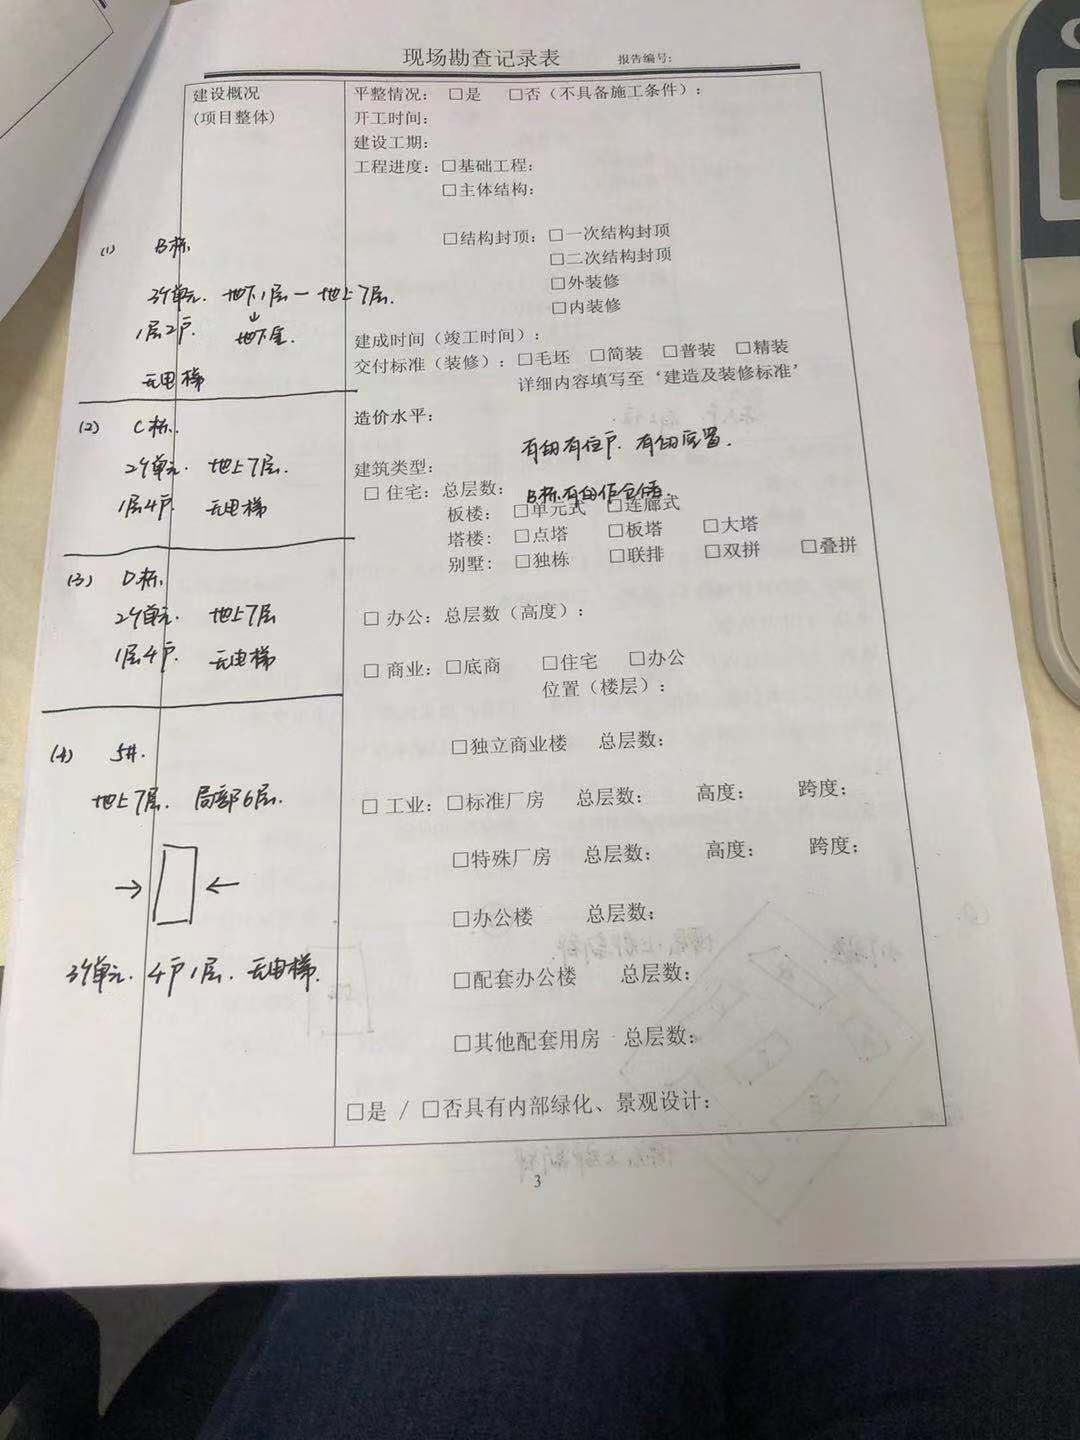 现场勘查记录表 报告编号:
建设概况
(项目整体)
平整情况: □是 □否(不具备施工条件):
开工时间:
建设工期:
工程进度: □基础工程:
□主体结构:
□结构封顶: □一次结构封顶
□二次结构封顶
□外装修
□内装修
建成时间(竣工时间):
交付标准(装修): □毛坯 □简装 □普装 □精装
详细内容填写至‘建造及装修标准’
造价水平:
有的有住户. 有的闲置.
建筑类型:
□ 住宅: 总层数: B栋有的作仓储
板楼: □单元式 □连廊式
塔楼: □点塔 □板塔 □大塔
别墅: □独栋 □联排 □双拼 □叠拼
□ 办公: 总层数(高度):
□ 商业: □底商 □住宅 □办公
位置(楼层):
□独立商业楼 总层数:
□ 工业: □标准厂房 总层数: 高度: 跨度:
□特殊厂房 总层数: 高度: 跨度:
□办公楼 总层数:
□配套办公楼 总层数:
□其他配套用房 总层数:
□是 / □否具有内部绿化、景观设计:
(1) B栋.
3个单元. 地下1层—地上7层.
1层2户. 地下室.
无电梯
(2) C栋.
2个单元. 地上7层.
1层4户. 无电梯
(3) D栋.
2个单元. 地上7层
1层4户. 无电梯
(4) 5#.
地上7层. 局部6层.
3个单元. 4户1层. 无电梯.
3